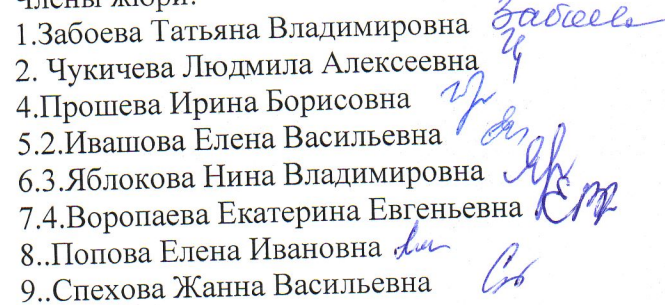 Члены жюри:
1.Забоева Татьяна Владимировна Забоева
2. Чукичева Людмила Алексеевна
4.Прошева Ирина Борисовна
5.2.Ивашова Елена Васильевна
6.3.Яблокова Нина Владимировна
7.4.Воропаева Екатерина Евгеньевна
8..Попова Елена Ивановна
9..Спехова Жанна Васильевна